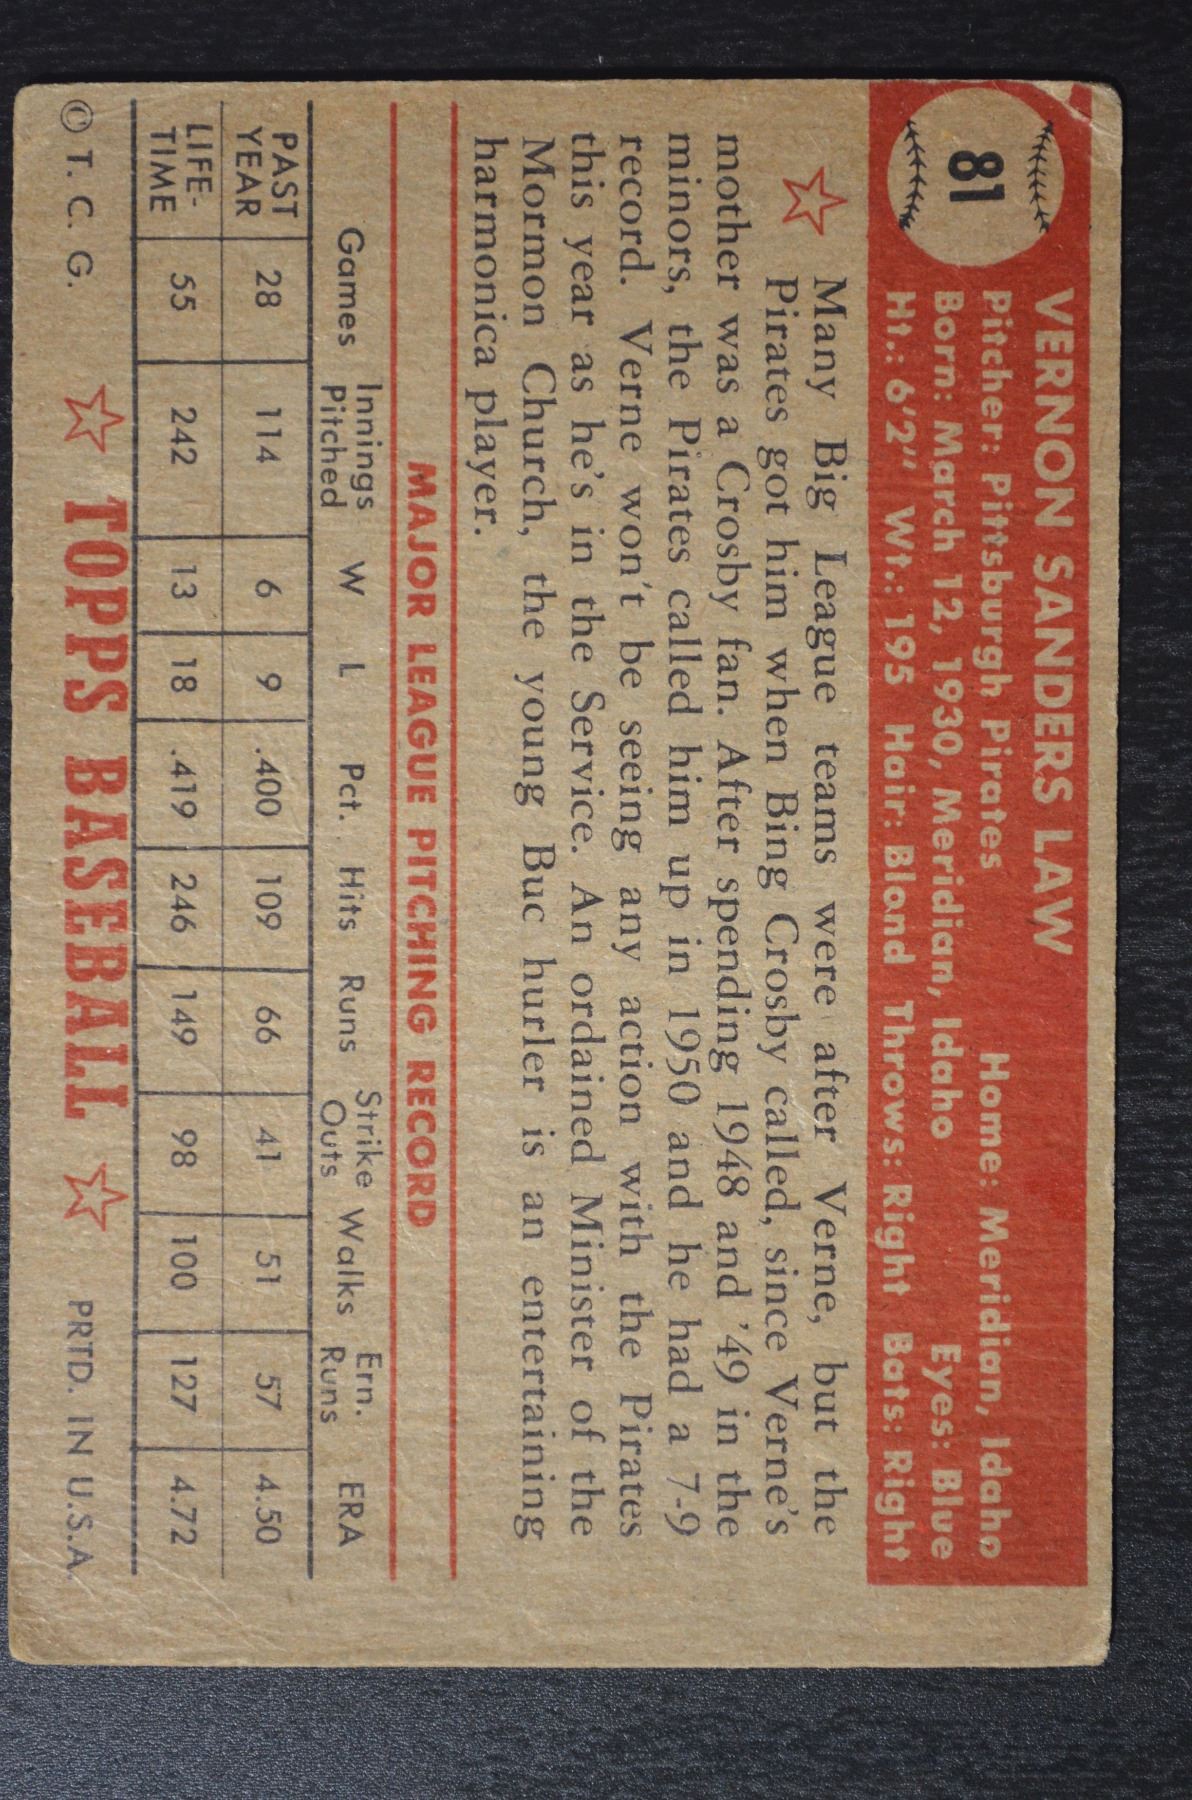 81
VERNON SANDERS LAW
Pitcher: Pittsburgh Pirates Home: Meridian, Idaho
Born: March 12, 1930, Meridian, Idaho Eyes: Blue
Ht.: 6'2" Wt.: 195 Hair: Blond Throws: Right Bats: Right
Many Big League teams were after Verne, but the
Pirates got him when Bing Crosby called, since Verne's
mother was a Crosby fan. After spending 1948 and '49 in the
minors, the Pirates called him up in 1950 and he had a 7-9
record. Verne won't be seeing any action with the Pirates
this year as he's in the Service. An ordained Minister of the
Mormon Church, the young Buc hurler is an entertaining
harmonica player.
MAJOR LEAGUE PITCHING RECORD
Games Innings Pitched W L Pct. Hits Runs Strike Outs Walks Ern. Runs ERA
PAST YEAR 28 114 6 9 .400 109 66 41 51 57 4.50
LIFE-TIME 55 242 13 18 .419 246 149 98 100 127 4.72
© T. C. G. TOPPS BASEBALL PRTD. IN U.S.A.